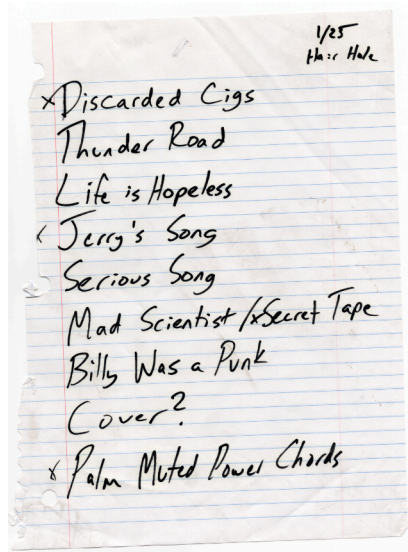 1/25
Hair Hole
xDiscarded Cigs
Thunder Road
Life is Hopeless
x Jerry's Song
Serious Song
Mad Scientist /xSecret Tape
Billy Was a Punk
Cover?
x Palm Muted Power Chords